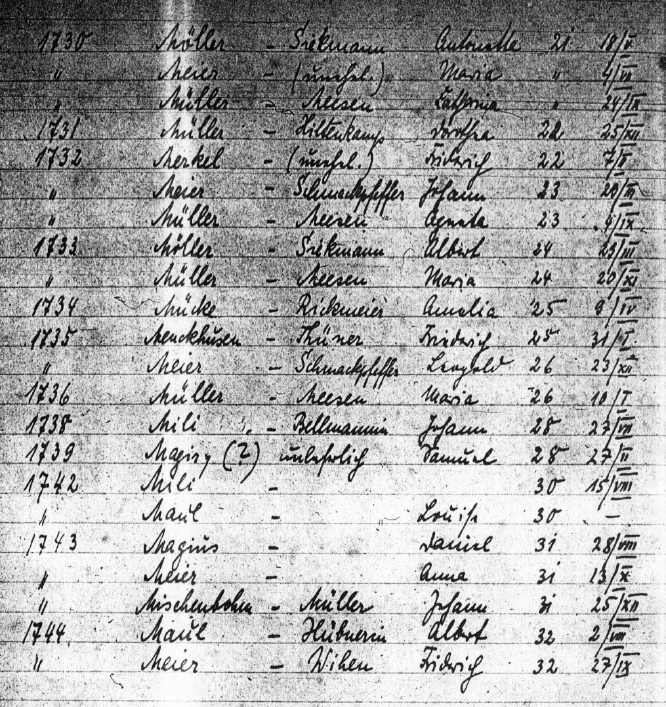 1730 Möller - Siekmann Antonette 21 18/V
" Meier - (unehel.) Maria " 4/VII
" Müller - Meesen Catharina " 24/IX
1731 Müller - Hiltenkamp Dorthea 22 25/XII
1732 Merkel - (unehel.) Fridrich 22 7/II
" Meier - Schmackpfeffer Johann 23 20/III
" Müller - Meesen Agneta 23 9/IX
1733 Möller - Siekmann Albert 24 23/III
" Müller - Meesen Maria 24 20/XI
1734 Mücke - Rickmeier Amelia 25 9/IV
1735 Menckhusen - Thüner Friedrich 25 31/I
" Meier - Schmackpfeffer Leopold 26 23/XII
1736 Müller - Meesen Maria 26 10/I
1738 Mili - Bellmannin Johann 28 27/VII
1739 Magiry (?) unleserlich Samuel 28 27/II
1742 Mili - 30 15/VIII
" Maul - Louise 30 -
1743 Magius - Daniel 31 28/VIII
" Meier - Anna 31 13/X
" Mischenbohm - Müller Johann 31 25/XII
1744. Maul - Hübnerin Albert 32 2/VIII
" Meier - Wihen Fridrich 32 27/IX